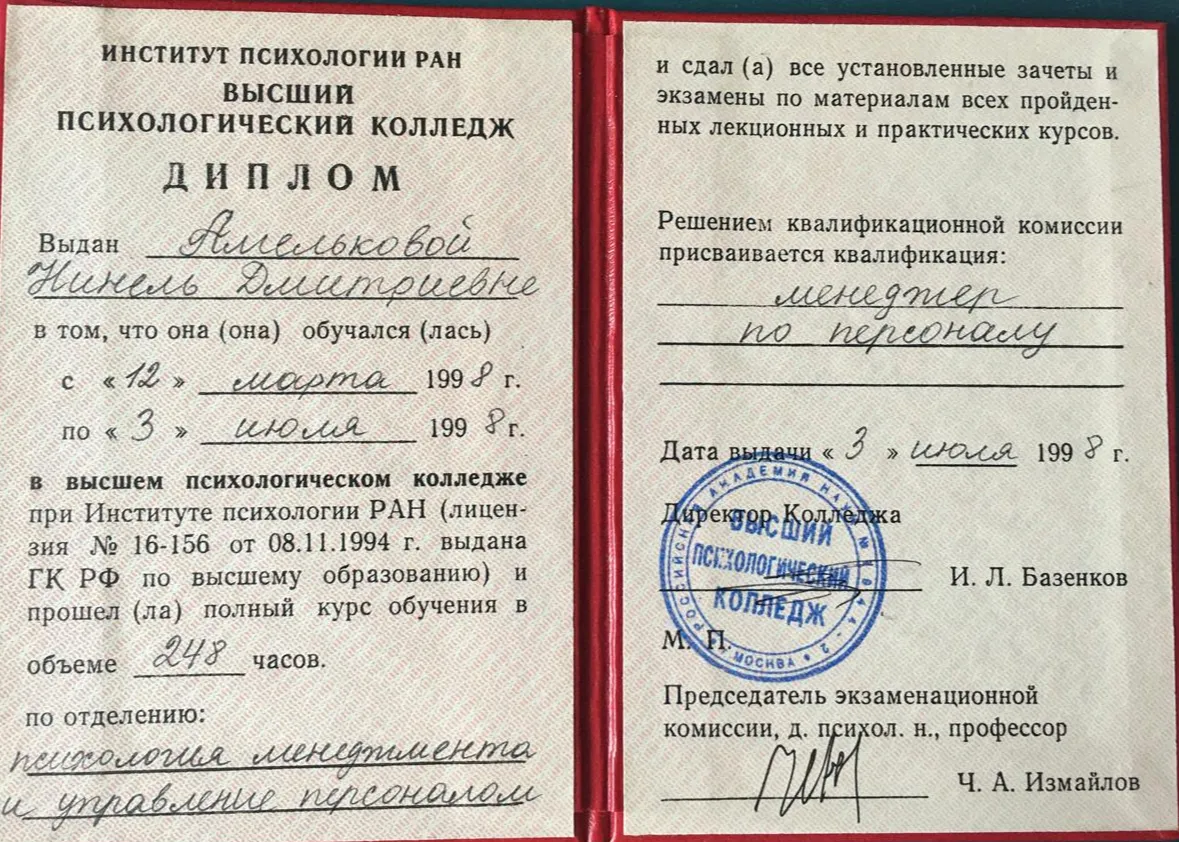 ИНСТИТУТ ПСИХОЛОГИИ РАН
ВЫСШИЙ
ПСИХОЛОГИЧЕСКИЙ КОЛЛЕДЖ
ДИПЛОМ
Выдан Амельковой
Нинель Дмитриевне
в том, что она (она) обучался (лась)
с «12» марта 1998 г.
по «3» июля 1998 г.
в высшем психологическом колледже
при Институте психологии РАН (лицен-
зия № 16-156 от 08.11.1994 г. выдана
ГК РФ по высшему образованию) и
прошел (ла) полный курс обучения в
объеме 248 часов.
по отделению:
психология менеджмента
и управление персоналом
и сдал (а) все установленные зачеты и
экзамены по материалам всех пройден-
ных лекционных и практических курсов.
Решением квалификационной комиссии
присваивается квалификация:
менеджер
по персоналу
Дата выдачи «3» июля 1998 г.
Директор Колледжа
И. Л. Базенков
М. П.
РОССИЙСКАЯ АКАДЕМИЯ НАУК
МОСКВА
ВЫСШИЙ
ПСИХОЛОГИЧЕСКИЙ
КОЛЛЕДЖ
Председатель экзаменационной
комиссии, д. психол. н., профессор
Ч. А. Измайлов